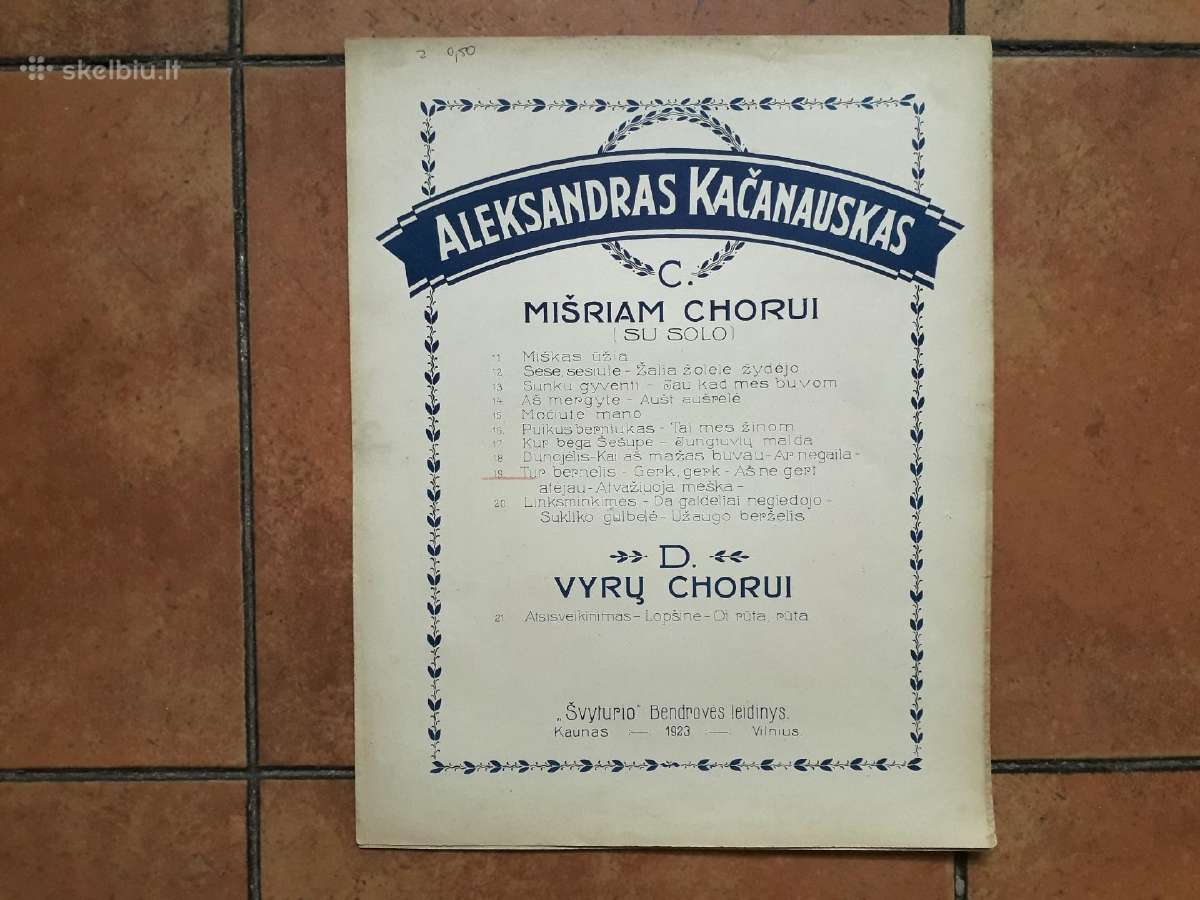 skelbiu.lt
2 0,50
ALEKSANDRAS KAČANAUSKAS
C.
MIŠRIAM CHORUI
(SU SOLO)
11. Miškas ūžia
12. Sesė, sesiulė - Žalia žolelė žydėjo
13. Sunku gyventi - Jau kad mes buvom
14. Aš mergytė - Aušt aušrelė
15. Močiutė mano
16. Puikus berniukas - Tai mes žinom
17. Kur bėga Šešupė - Jungtuvių malda
18. Dunojėlis - Kai aš mažas buvau - Ar negaila -
19. Tur bernelis - Gerk, gerk - Aš ne gert
atėjau - Atvažiuoja meška -
20. Linksminkimės - Da gaideliai negiedojo -
Sukliko gulbelė - Užaugo berželis
D.
VYRŲ CHORUI
21. Atsisveikinimas - Lopšinė - Oi rūta, rūta
„Švyturio" Bendrovės leidinys.
Kaunas — 1923 — Vilnius.